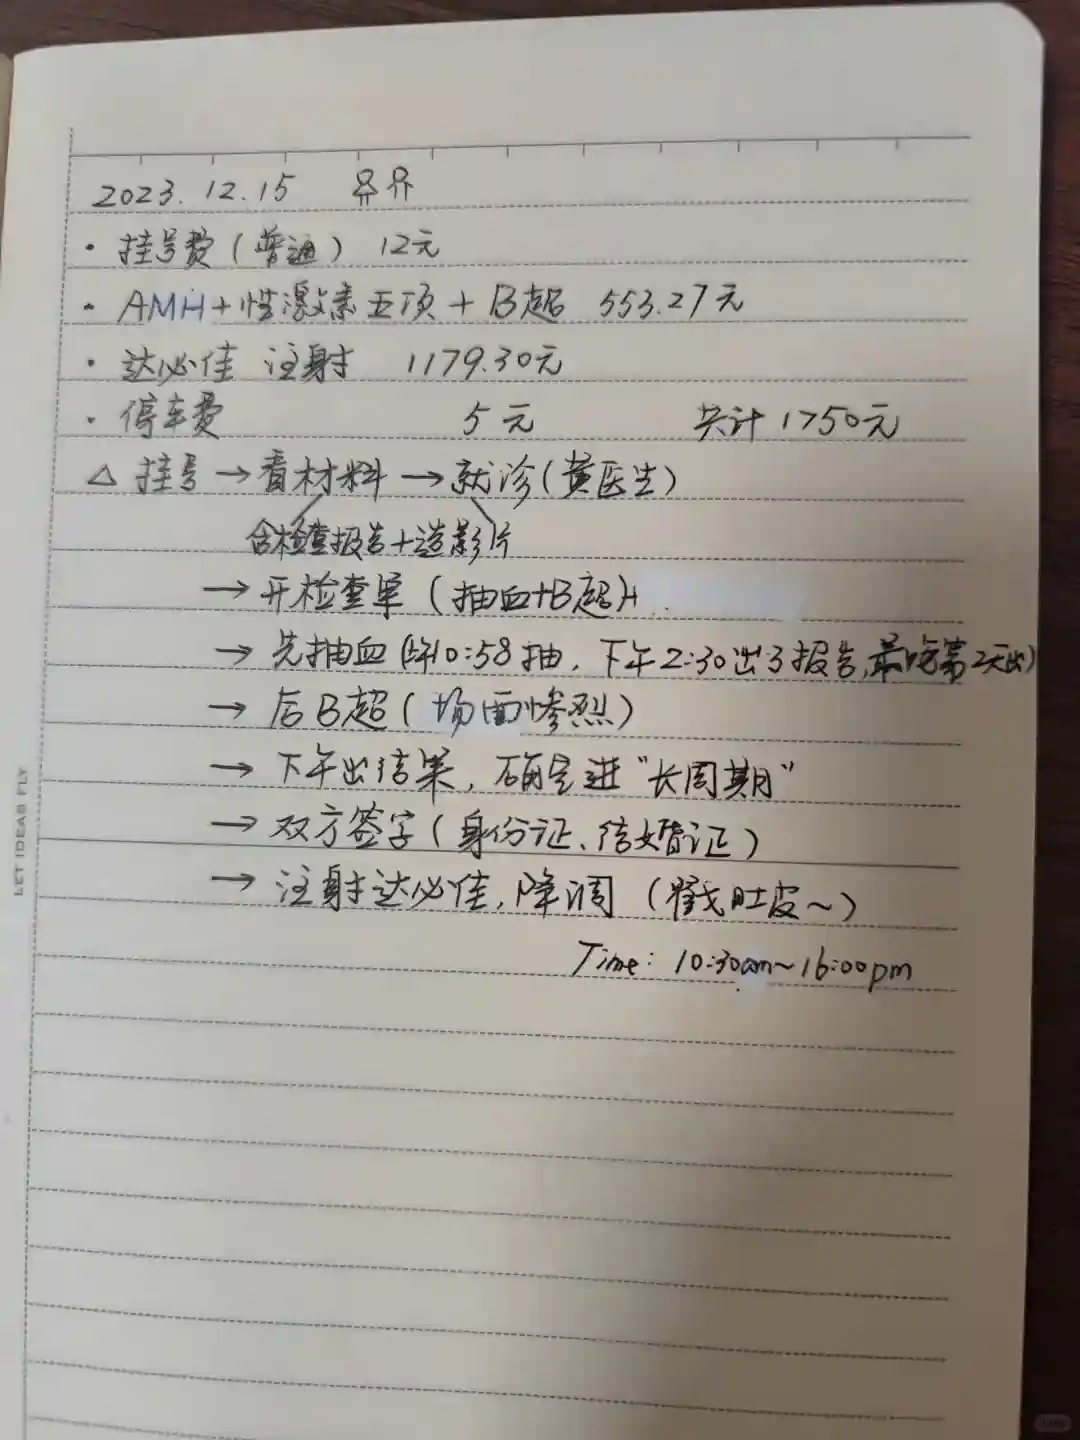 2023.12.15
· 挂号费（普通） 12元
· AMH+性激素五项+B超 553.27元
· 达必佳 注射 1179.30元
· 停车费 5元 共计1750元
△ 挂号→看材料→就诊(黄医生)
含检查报告+造影片
→开检查单(抽血+B超)
→先抽血(上午10:58抽, 下午2:30出了报告,最晚第2天出)
→后B超(场面惨烈)
→下午出结果, 确定进“长周期”
→双方签字(身份证、结婚证)
→注射达必佳, 降调 (戳肚皮~)
Time: 10:30am~16:00pm
LET IDEAS FLY